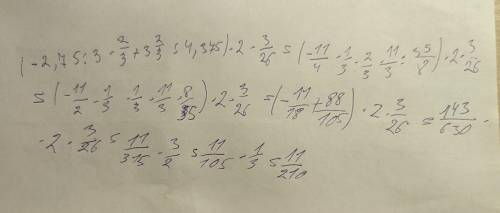 (-2,75:3·2/3+3 2/3:4,375)·2·3/26=(-11/4·1/3·2/3·11/3:35/8)·2·3/26
=(-11/2·1/3·1/3·11/3·8/35)·2·3/26=(-11/18+88/105)·2·3/26=143/630·
·2·3/26=11/315·3/2=11/105·1/3=11/210